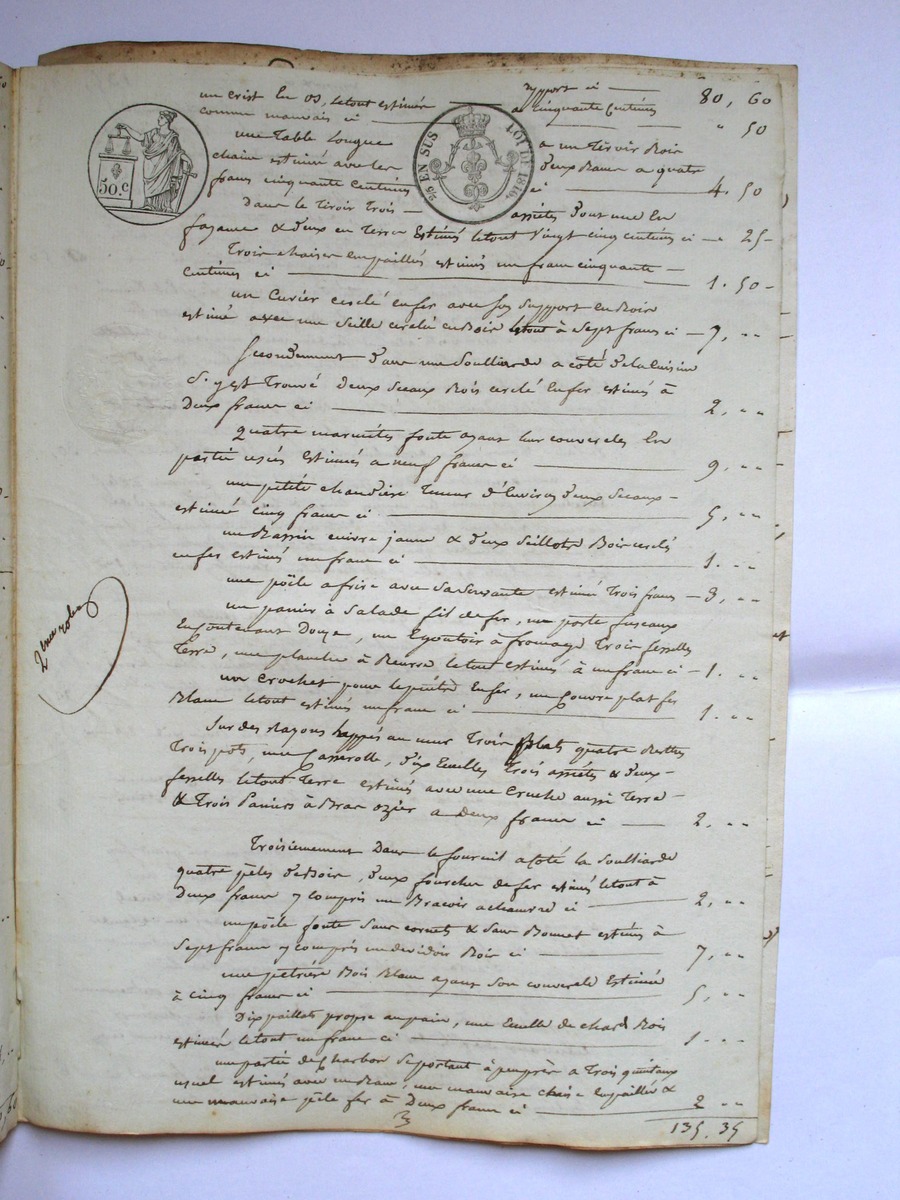 rapport ci — 80, 60
un crist en os, letout estimée a cinquante Centimes
comme mauvais ci — " 50
une Table Longue a un Tiroir Bois
chaine estimé avec les deux Bancs a quatre
francs cinquante Centimes ci — 4. 50
50.c
25 EN SUS LOI DE 1816.
Dans le Tiroir Trois — assiétes dont une En
fayance & deux en Terre Estimés letout Vingt cinq centimes ci — 25 -
Trois chaises Empaillés estimés un franc cinquante —
Centimes ci — 1. 50 -
un Cuvier cerclé en fer avec son Support en Bois
estimé avec une Seille cerclé en Bois letout à Sept francs ci — 7, "
Secondement dans une Soulliarde a coté dela Cuisine
S'y est Trouvé deux Sceaux Bois cerclé En fer estimés à
Deux francs ci — 2, "
Quatre marmites fonte ayant leur couvercles En
partie usés Estimés a neuf francs ci — 9. "
une petite chaudière Teneur d'Environ deux Sceaux -
estimée cinq francs ci — 5, "
un Bassin cuivre jaune & deux Seillots Bois cerclés
en fer estimés un franc ci — 1. "
une poële a frire avec Sa Servante estimé Trois francs — 3, "
un panier à Salade fil de fer, un porte fuseaux
En contenant Douze, un Egoutoir à fromage Trois fesselles
Terre, une planche à Beurre letout estimés à un franc ci — 1. "
un Crochet pour lepétrin Enfer, un Couvre plat fer
Blanc letout estimés un franc ci — 1. "
Sur des Rayons happés au mur Trois plats quatre
Trois pots, une Casserolle, dix Ecuelles, Trois assiétes & deux -
fesselles letout Terre estimés avec une Cruche aussi Terre -
& Trois Paniers à Bras ozier a Deux francs ci — 2. "
2eme rolle
Troisiemement Dans le fournil a Coté la Soulliarde
quatre pèles de Bois, deux fourches de fer estimés letout à
Deux francs y compris un a chanvre ci — 2, "
un poële fonte Sans cornets & Sans Bonnet estimés à
Sept francs y compris un devidoir Bois ci — 7, "
une petrière Bois Blanc ayant Son couvercle Estimée
à Cinq francs ci — 5, "
Dix paillats propre au pain, une Ecuelle de Bois
estimée letout un franc ci — 1 "
une partie de Charbon Se portant à peuprès a Trois quintaux
usuel estimés avec un Banc, une mauvaise chaise Empaillée &
une mauvaise pèle fer à Deux francs ci — 2 "
135. 35